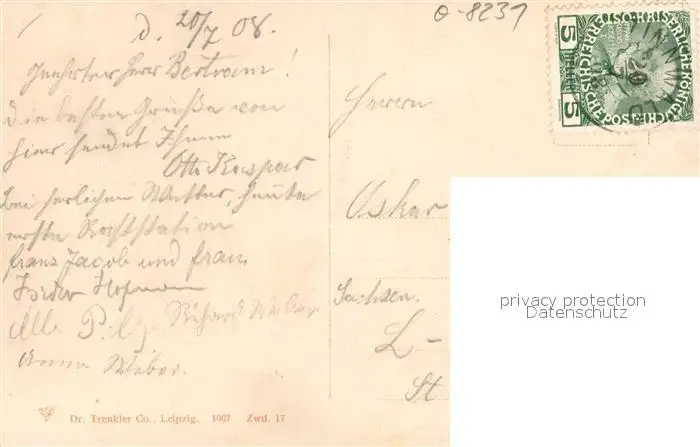 d. 20/7 08.
Geehrter Herr Bertram!
die besten Grüße von
hier sendet Ihnen
Otto Kaspar
bei herlichen Wetter, heute
erste Raststation
franz Jacob und frau
Isidor Hofmann
Richard Weber
Anna Weber.
Dr. Trenkler Co., Leipzig. 1907. Zwd. 17
θ-8237
5 HELLER 5
KAISERLICHE KÖNIGLICHE ÖSTERREICHISCHE POST
ZINNWALD
20
Herrn
Oskar
Sachsen.
L-
St
privacy protection
Datenschutz